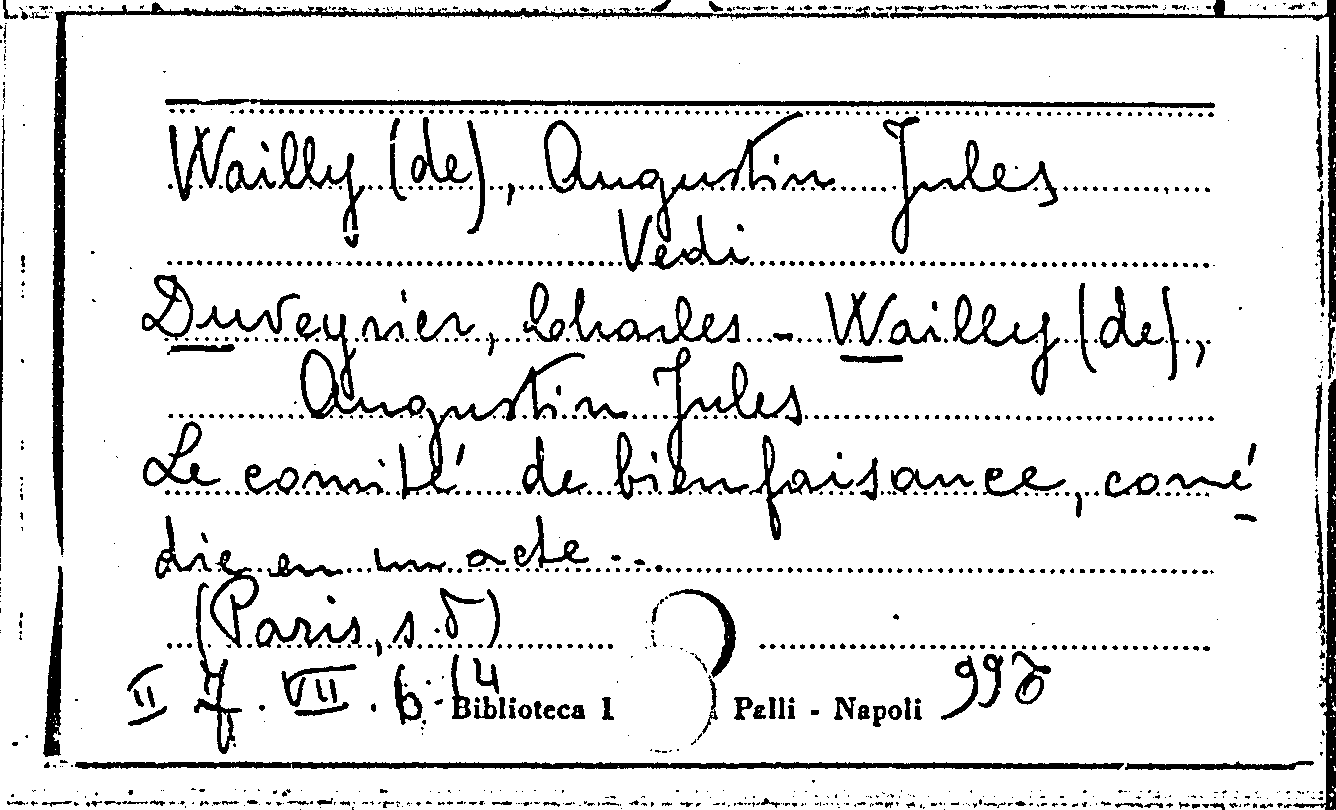 Wailly (de), Augustin Jules
Vedi
Duveyrier, Charles - Wailly (de),
Augustin Jules
Le comité de bienfaisance, comé
die en un acte...
(Paris, s.d)
II 7. VII. 6.(4 Biblioteca Palli - Napoli